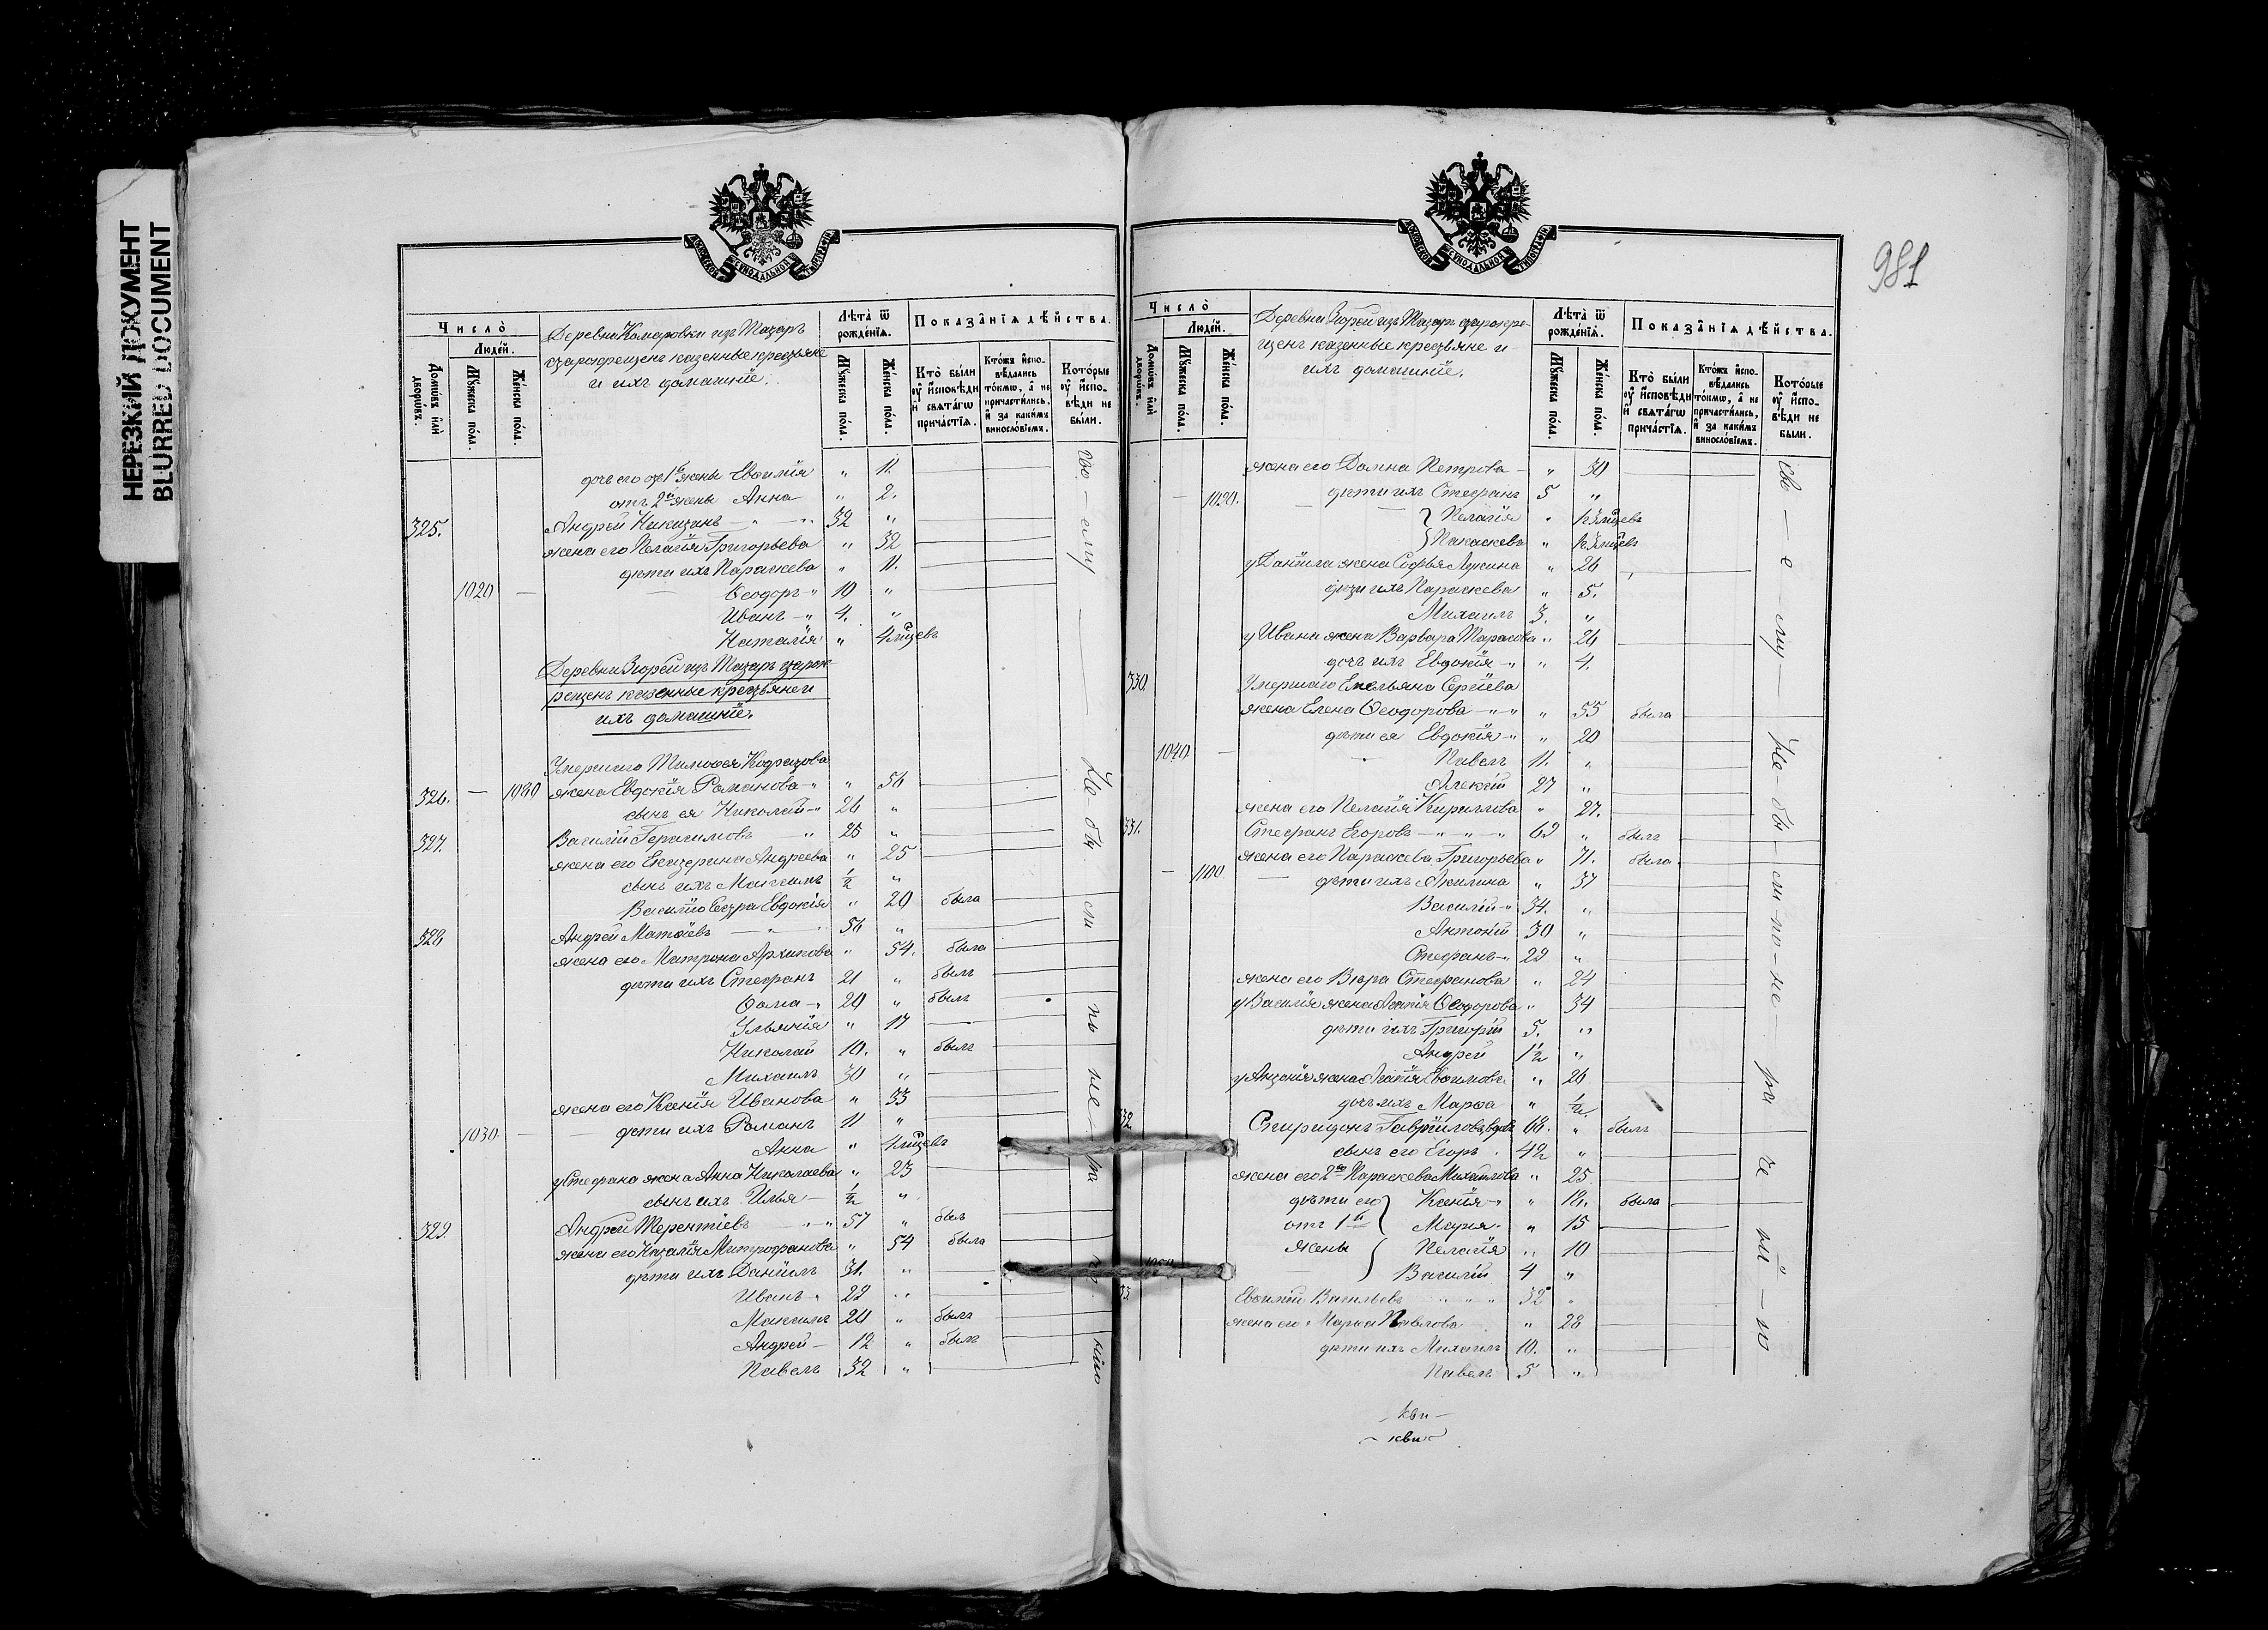 НЕРЕЗКИЙ ДОКУМЕНТ
BLURRED DOCUMENT
МОСКОВСКОЙ СѴНОДАЛЬНОЙ ТИПОГРАФІИ
Число̀
Люде́й.
Домѡ́въ и҆лѝ дворѡ́въ.
Мꙋ́жеска по́ла.
Же́нска по́ла.
Деревни Комаровки изъ Татаръ
старокрещен казенные крестьяне
и ихъ домашніе.
Лѣ́та ѿ рожде́нїѧ.
Мꙋ́жеска по́ла.
Же́нска по́ла.
Показа̑нїѧ дѣ́йства.
Кто̀ бы́ли оу҆ и҆сповѣ́ди и҆ свѧта́гѡ прича́стїѧ.
Кто́жъ и҆сповѣ́дались то́кмѡ, а҆ не причасти́лись, и҆ за каки́мъ виносло́вїемъ.
Кото́рые оу҆ и҆сповѣ́ди не бы́ли.
дочь его отъ 1й жены Евѳимія " 11.
отъ 2й жены Анна " 2.
325. Андрей Никитинъ 32 "
жена его Пелагія Григорьева " 32
дѣти ихъ Параскева " 11.
1020 — Ѳеодоръ 10 "
Иванъ 4. "
Наталія " 4 мѣсцевъ
Деревни Зюрей изъ Татаръ старок-
рещенъ казенные крестьяне и
ихъ домашніе.
Умершаго Тимоѳея
326. — жена Евдокія Романова " 56
сынъ ея Николай 26 "
327. Василій Герасимовъ 25 "
жена его Екатерина Андреева " 25
сынъ ихъ Максимъ ½ "
Василія сестра Евдокія " 20 была
328 Андрей Матѳіевъ 56 "
жена его Матрона Архипова " 54. была
дѣти ихъ Стефанъ 21 " былъ
Ѳома 20 " былъ
Ульянія " 17
Николай 10. " былъ
Михаилъ 30 "
жена его Ксенія Иванова " 33
1030 — дѣти ихъ Романъ 11 "
Анна " 4 мѣсцевъ
у Стефана жена Анна Николаева " 23
сынъ ихъ Илья ½ "
329. Андрей Терентіевъ 57 " былъ
жена его Наталія Митрофанова " 54 была
дѣти ихъ Даніилъ 31. "
Иванъ 29 "
Максимъ 20 " былъ
Андрей 12 " былъ
Павелъ 32 "
981
МОСКОВСКОЙ СѴНОДАЛЬНОЙ ТИПОГРАФІИ
Число̀
Люде́й.
Домѡ́въ и҆лѝ дворѡ́въ.
Мꙋ́жеска по́ла.
Же́нска по́ла.
Деревни Зюрей изъ Татаръ старокре-
щенъ казенные крестьяне и
ихъ домашніе.
Лѣ́та ѿ рожде́нїѧ.
Мꙋ́жеска по́ла.
Же́нска по́ла.
Показа̑нїѧ дѣ́йства.
Кто̀ бы́ли оу҆ и҆сповѣ́ди и҆ свѧта́гѡ прича́стїѧ.
Кто́жъ и҆сповѣ́дались то́кмѡ, а҆ не причасти́лись, и҆ за каки́мъ виносло́вїемъ.
Кото́рые оу҆ и҆сповѣ́ди не бы́ли.
жена его Домна Петрова " 30
— дѣти ихъ Стефанъ 5 "
Пелагія "
"
у Даніила жена Софья Лукина " 26
дѣти ихъ Параскева " 5.
Михаилъ 3. "
у Ивана жена Варвара Тарасова " 26
дочь ихъ Евдокія " 4.
330. Умершаго Емельяна Сергіева
жена Елена Ѳеодорова " 55 была
дѣти ея Евдокія " 20
1040 — Павелъ 11. "
Алексій 27 "
жена его Пелагія Кириллова " 27.
331. Стефанъ Егоровъ 69 " былъ
жена его Параскева Григорьева " 71. была
— 1100 дѣти ихъ Акилина " 37
Василій 34. "
Антоній 30 "
Стефанъ 29 "
жена его Вѣра Стефанова " 24
у Василія жена Агапія Ѳеодорова " 34
дѣти ихъ Григорій 5. "
Андрей 1½ "
у Антонія жена Агапія Евѳимова " 26
дочь ихъ Марѳа " ½
32 Спиридонъ Гавріиловъ, вдовъ 68. " былъ
сынъ его Егоръ 42 "
жена его 2я Параскева Михайлова " 25.
дѣти его Ксенія " 18. была
отъ 1й Марія " 15
жены Пелагія " 10
Василій 4 "
33. Евѳимій Васильевъ 32 "
жена его Марѳа Павлова " 28
дѣти ихъ Михаилъ 10. "
Павелъ 5 "